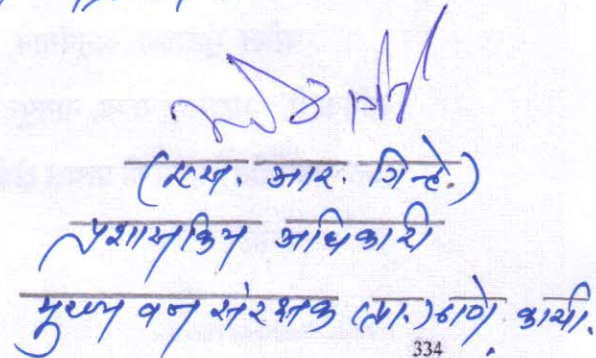 (एस. आर. गिन्हे.)
प्रशासकिय अधिकारी
मुख्य वन संरक्षक (प्रा.) ठाणे. कार्या.
334